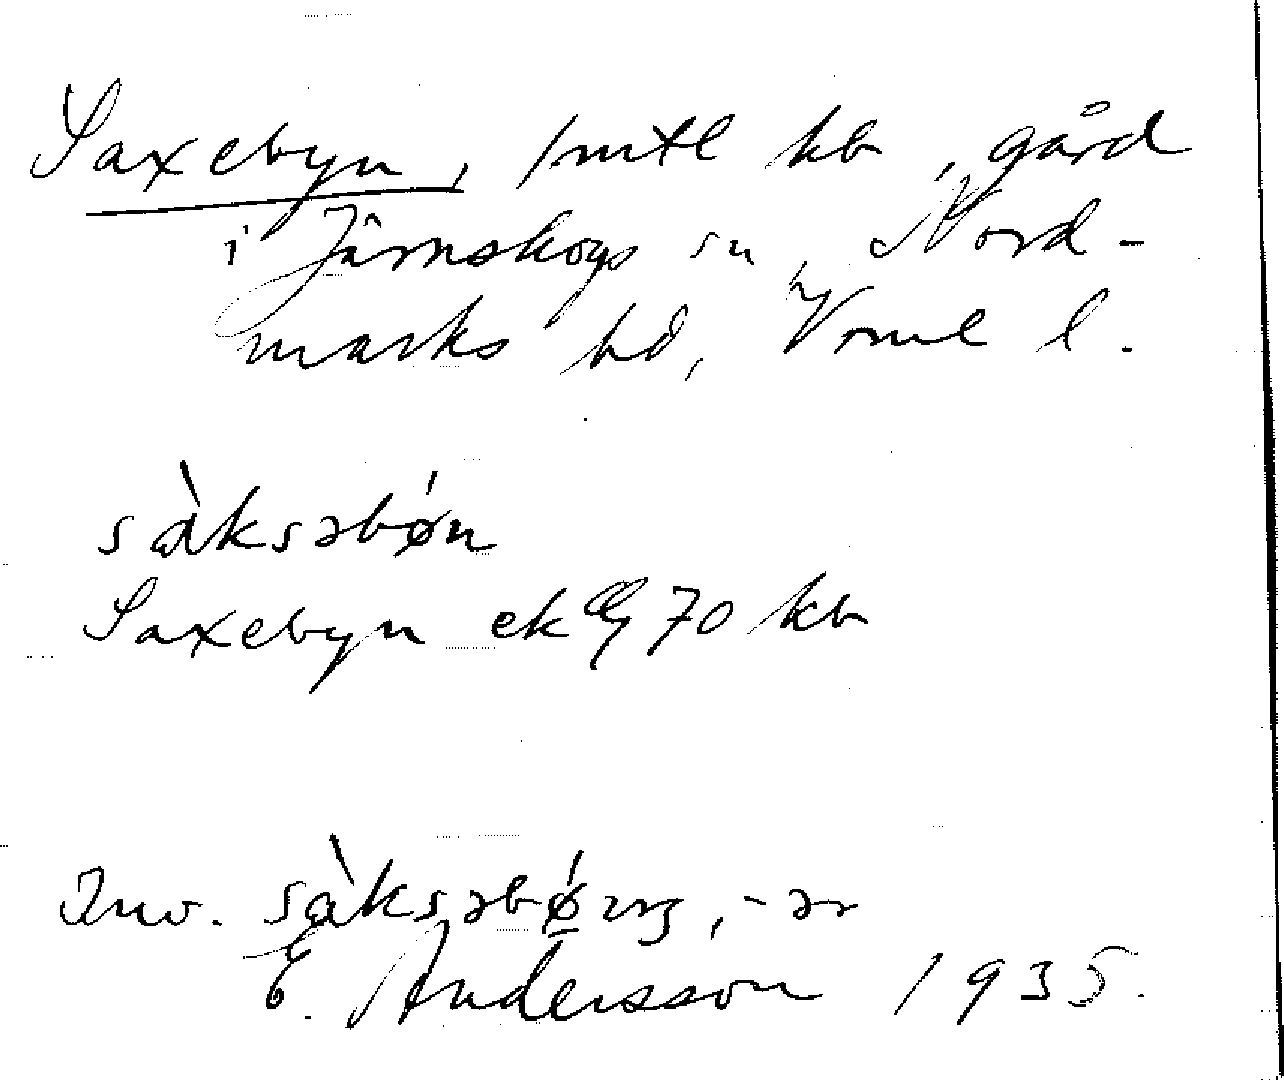 Saxebyn, 1 mtl kb, gård
i Järnskogs sn, Nord-
marks hd, Vrml l.
sàksəbǿn
Saxebyn ek 70 kb
Inv. sàksəbǿ , -ər
E. Andersson 1935.